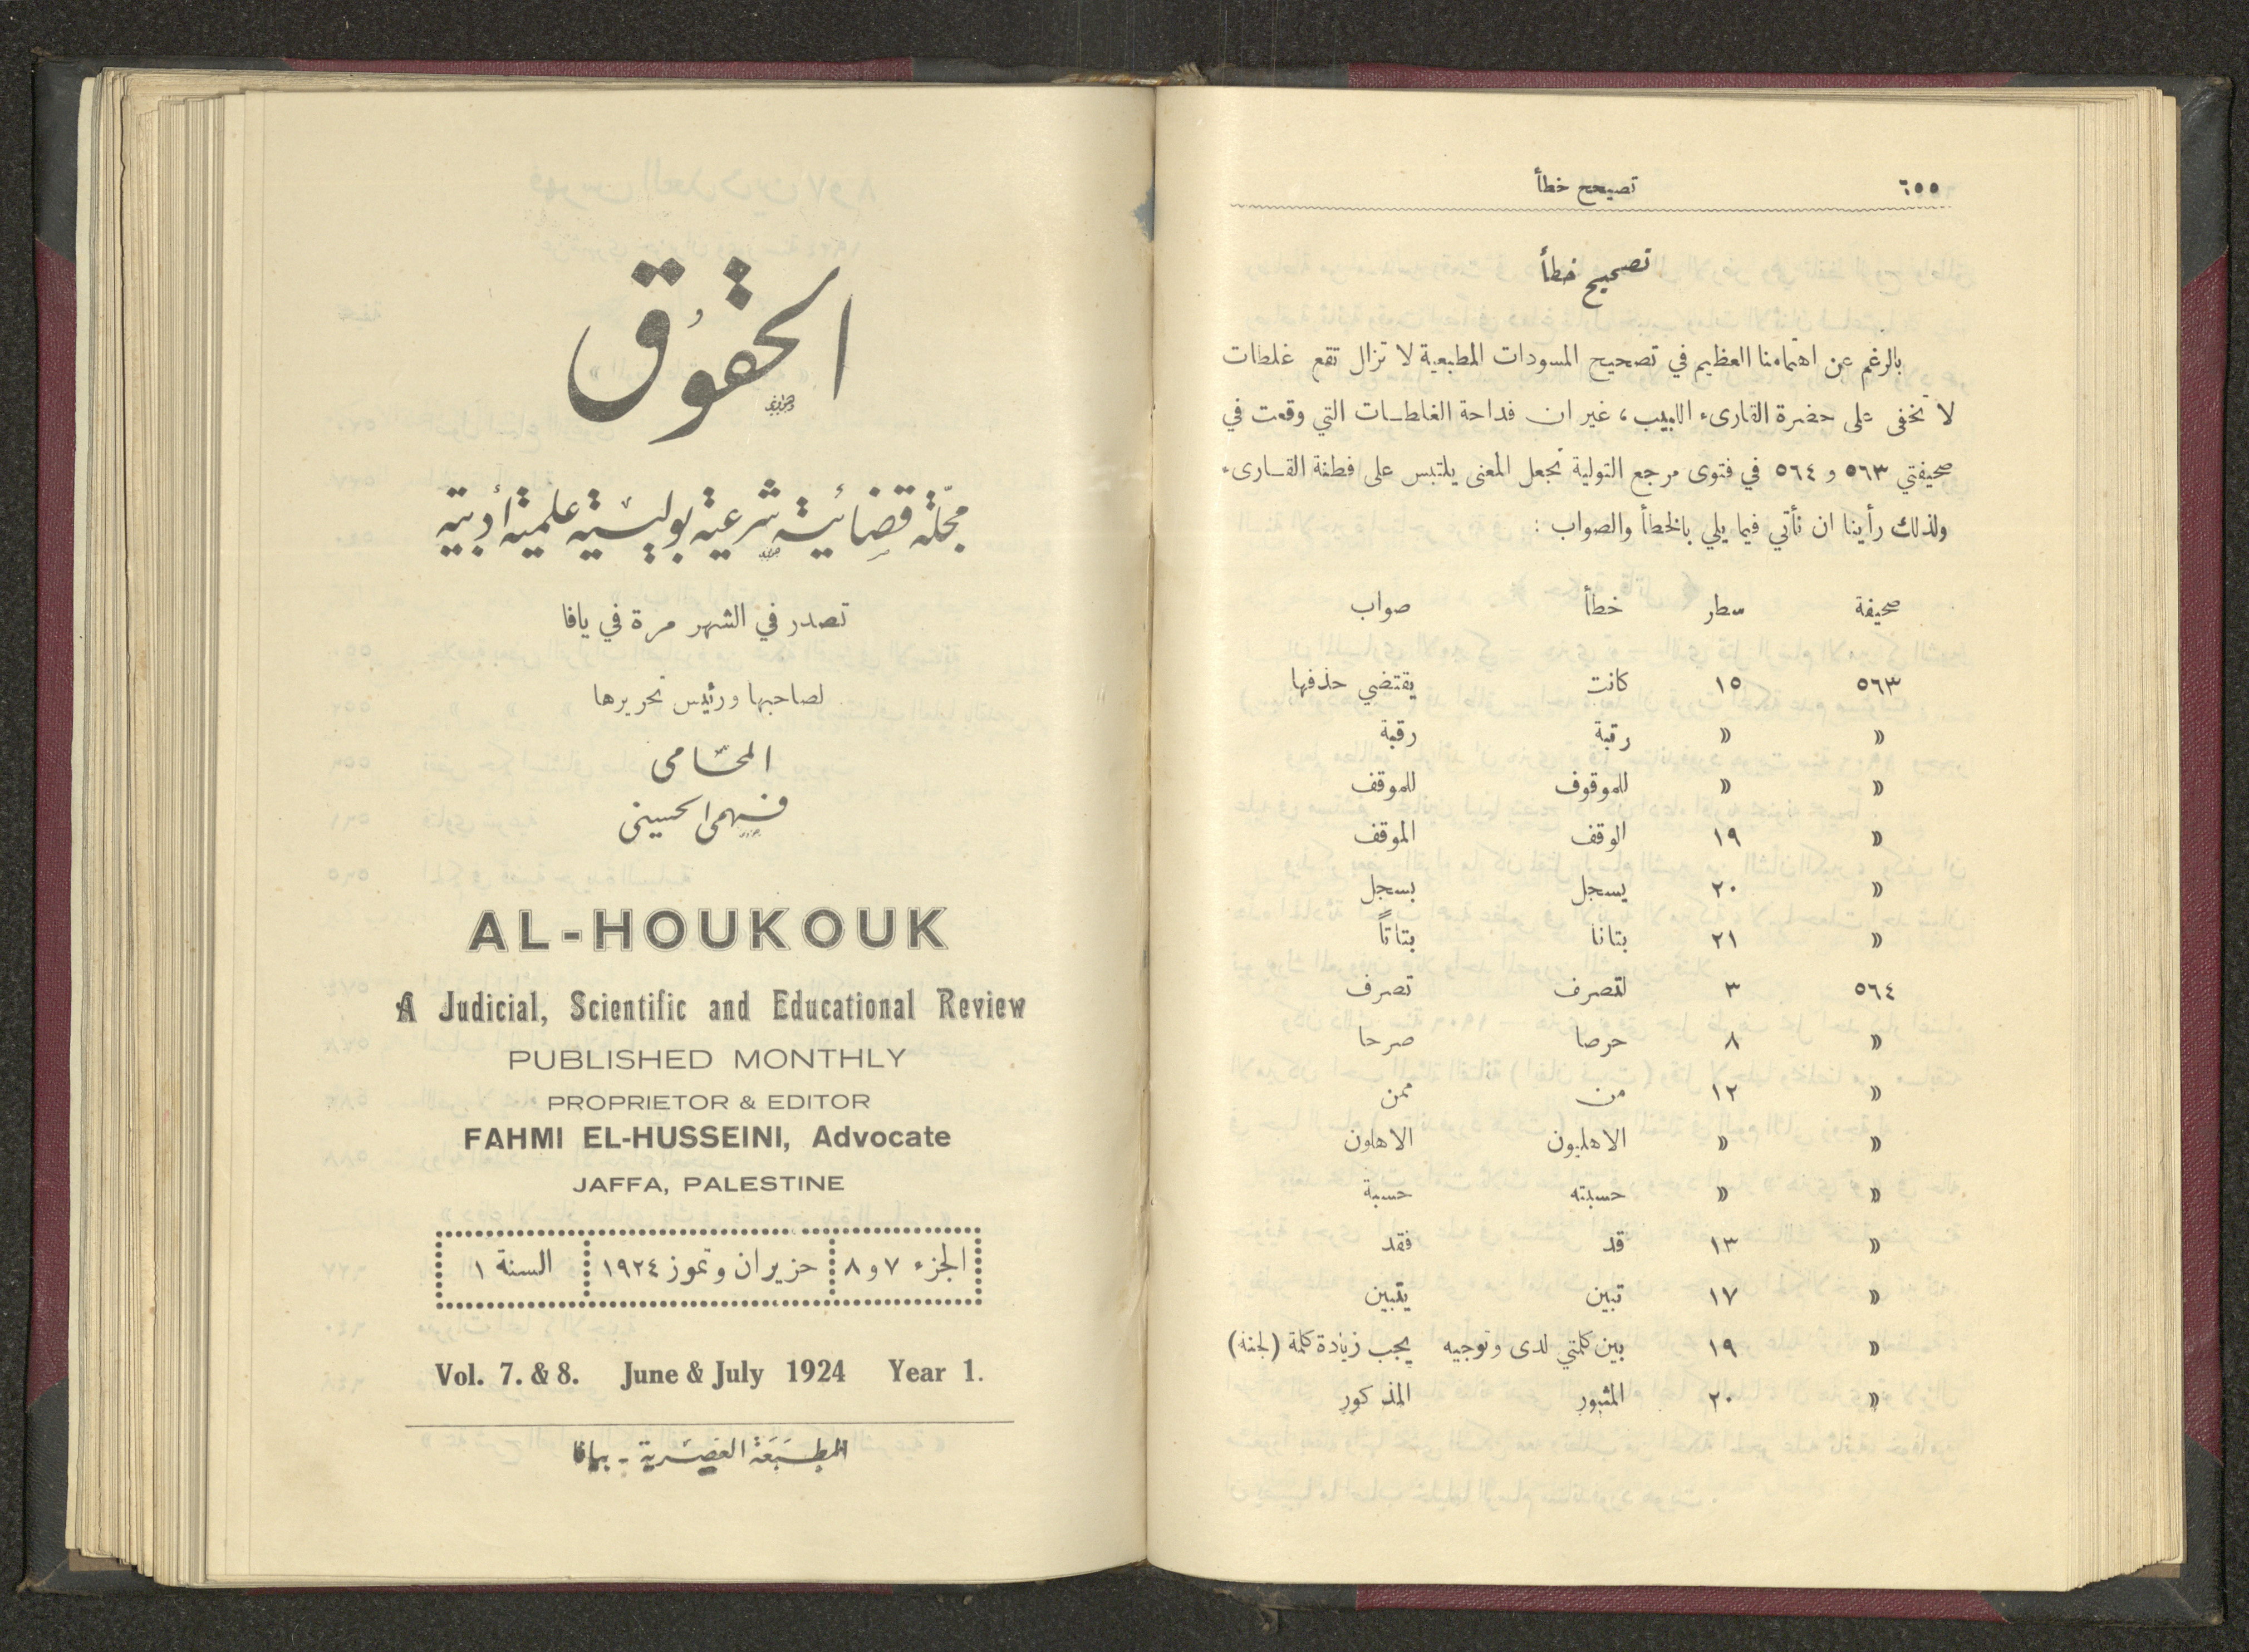 ٦٥٥
تصيحح خطأ
تصحيح خطأ
بالرغم عن اهتمامنا العظيم في تصحيح المسودات المطبعية لا تزال تقع غلطات
لا تخفى على حضرة القارىء اللبيب، غير ان فداحة الغلطات التي وقعت في
صحيفتي ٥٦٣ و ٥٦٤ في فتوى مرجع التولية تجعل المعنى يلتبس على فطنة القارىء
ولذلك رأينا ان نأتي فيما يلي بالخطأ والصواب :
صحيفة سطر خطأ صواب
٥٦٣ ١٥ كانت يقتضي حذفها
» » رتبة رقبة
» » للموقوف للموقف
» ١٩ الوقف الموقف
» ٢٠ يسجل بسجل
» ٢١ بتانا بتاتاً
٥٦٤ ٣ لتصرف تصرف
» ٨ حرصا صرحا
» ١٢ من ممن
» » الاهليون الاهلون
» » حسبته حسبة
» ١٣ قد فقد
» ١٧ تبين يتبين
» ١٩ بين كلمتي لدى وتوجيه يجب زيادة كلمة (لجنة)
» ٢٠ المثبور المذكور
الحقوق
مجلة قضائية شرعية بوليسية علمية أدبية
تصدر في الشهر مرة في يافا
لصاحبها ورئيس تحريرها
المحامى
فهمى الحسينى
AL-HOUKOUK
A Judicial, Scientific and Educational Review
PUBLISHED MONTHLY
PROPRIETOR & EDITOR
FAHMI EL-HUSSEINI, Advocate
JAFFA, PALESTINE
الجزء ٧ و ٨ حزيران وتموز ١٩٢٤ السنة ١
Vol. 7. & 8. June & July 1924 Year 1.
المطبعة العصرية - بيافا